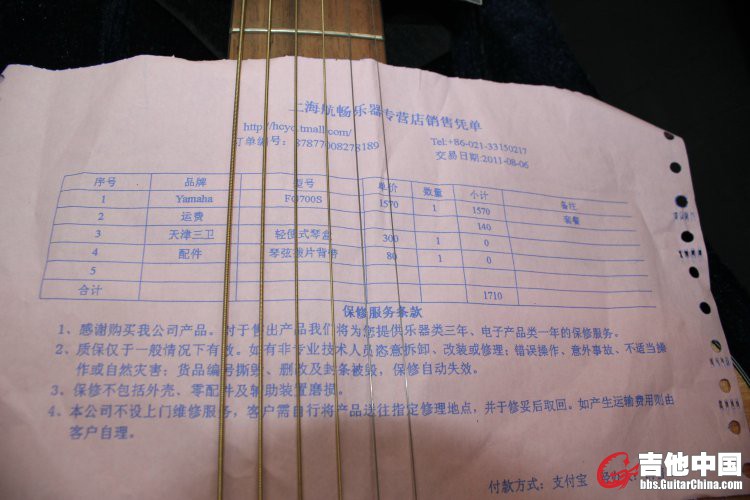 上海航畅乐器专营店销售凭单
http://hcyq.tmall.com/ Tel:+86-021-33150217
订单编号： 交易日期:2011-08-06
序号 品牌 型号 单价 数量 小计 备注
1 Yamaha FG700S 1570 1 1570 套餐
2 运费 140
3 天津三卫 轻便式琴盒 300 1 0
4 配件 琴弦拨片背带 80 1 0
5
合计 1710
保修服务条款
1、感谢购买我公司产品。对于售出产品我们将为您提供乐器类三年、电子产品类一年的保修服务。
2、质保仅于一般情况下有效。如有非专业技术人员恣意拆卸、改装或修理；错误操作、意外事故、不适当操
作或自然灾害；货品编号撕毁、删改及封条被毁，保修自动失效。
3、保修不包括外壳、零配件及辅助装置磨损。
4、本公司不设上门维修服务，客户需自行将产品送往指定修理地点，并于修妥后取回。如产生运输费用则由
客户自理。
付款方式：支付宝
吉他中国
bbs.GuitarChina.com